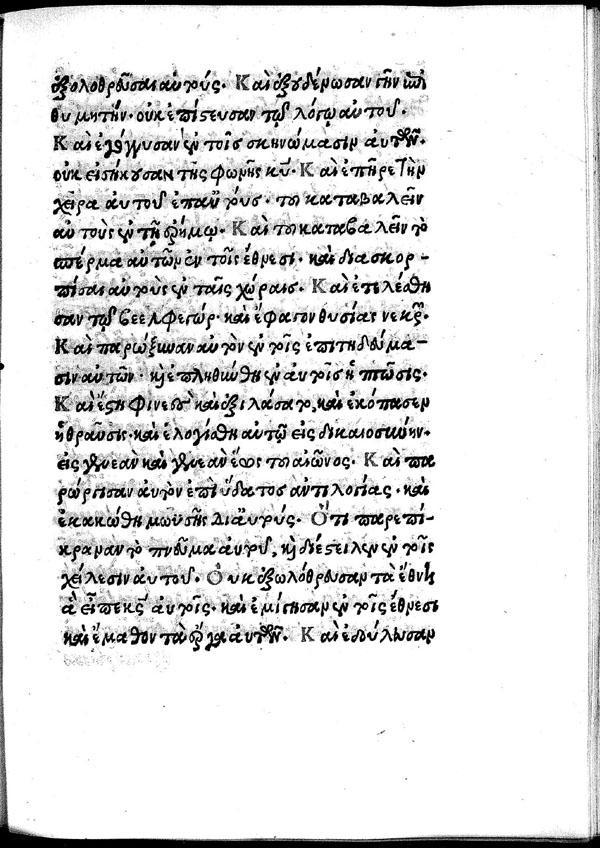 ἐξολοθρεῦσαι αὐτούς. Καὶ ἐξουδένωσαν γῆν ἐπι
θυμητήν· οὐκ ἐπίστευσαν τῷ λόγῳ αὐτοῦ.
Καὶ ἐγόγγυσαν ἐν τοῖς σκηνώμασιν αὐτῶν.
οὐκ εἰσήκουσαν τῆς φωνῆς κυ̅· Καὶ ἐπῆρε τὴν
χεῖρα αὐτοῦ ἐπαυτούς· του καταβαλεῖν
αὐτοὺς ἐν τῇ ἐρήμῳ. Καὶ του καταβαλεῖν τὸ
σπέρμα αὐτῶν ἐν τοῖς ἔθνεσι· καὶ διασκορ-
πίσαι αὐτοὺς ἐν ταῖς χώραις. Καὶ ἐτελέσθη
σαν τῷ βεελφεγώρ· καὶ ἔφαγον θυσίας νεκρῶν.
Καὶ παρώξυναν αὐτὸν ἐν τοῖς ἐπιτηδεύμα-
σιν αὐτῶν· καὶ ἐπληθύνθη ἐν αὐτοῖς ἡ πτῶσις.
Καὶ ἔστη Φινεὲς καὶ ἐξιλάσατο, καὶ ἐκόπασεν
ἡ θραῦσις· καὶ ἐλογίσθη αὐτῷ εἰς δικαιοσύνην·
εἰς γενεὰν καὶ γενεὰν ἕως του αἰῶνος. Καὶ πα
ρώργισαν αὐτὸν ἐπὶ ὕδατος ἀντιλογίας· καὶ
ἐκακώθη μωϋσῆς διαυτούς. Ὅτι παρεπί-
κραναν τὸ πνεῦμα αὐτοῦ, καὶ διέστειλεν ἐν τοῖς
χείλεσιν αὐτοῦ. Οὐκ ἐξωλόθρευσαν τὰ ἔθνη
ἃ εἶπε κς̅ αὐτοῖς. καὶ ἐμίγησαν ἐν τοῖς ἔθνεσι
καὶ ἔμαθον τὰ ἔργα αὐτῶν. Καὶ ἐδούλωσαν